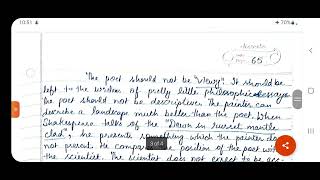 10:51
70%
65
"The poet should not be "viewy". It should be
left to the writers of pretty little philosophic essays
The poet should not be descriptive. The painter can
describe a landscape much better than the poet. When
Shakespeare talks of the "Dawn in russet mantle
clad", he presents something which the painter does
not present. He compares the position of the poet with
the scientist. The scientist does not expect to be acc-
3 of 4